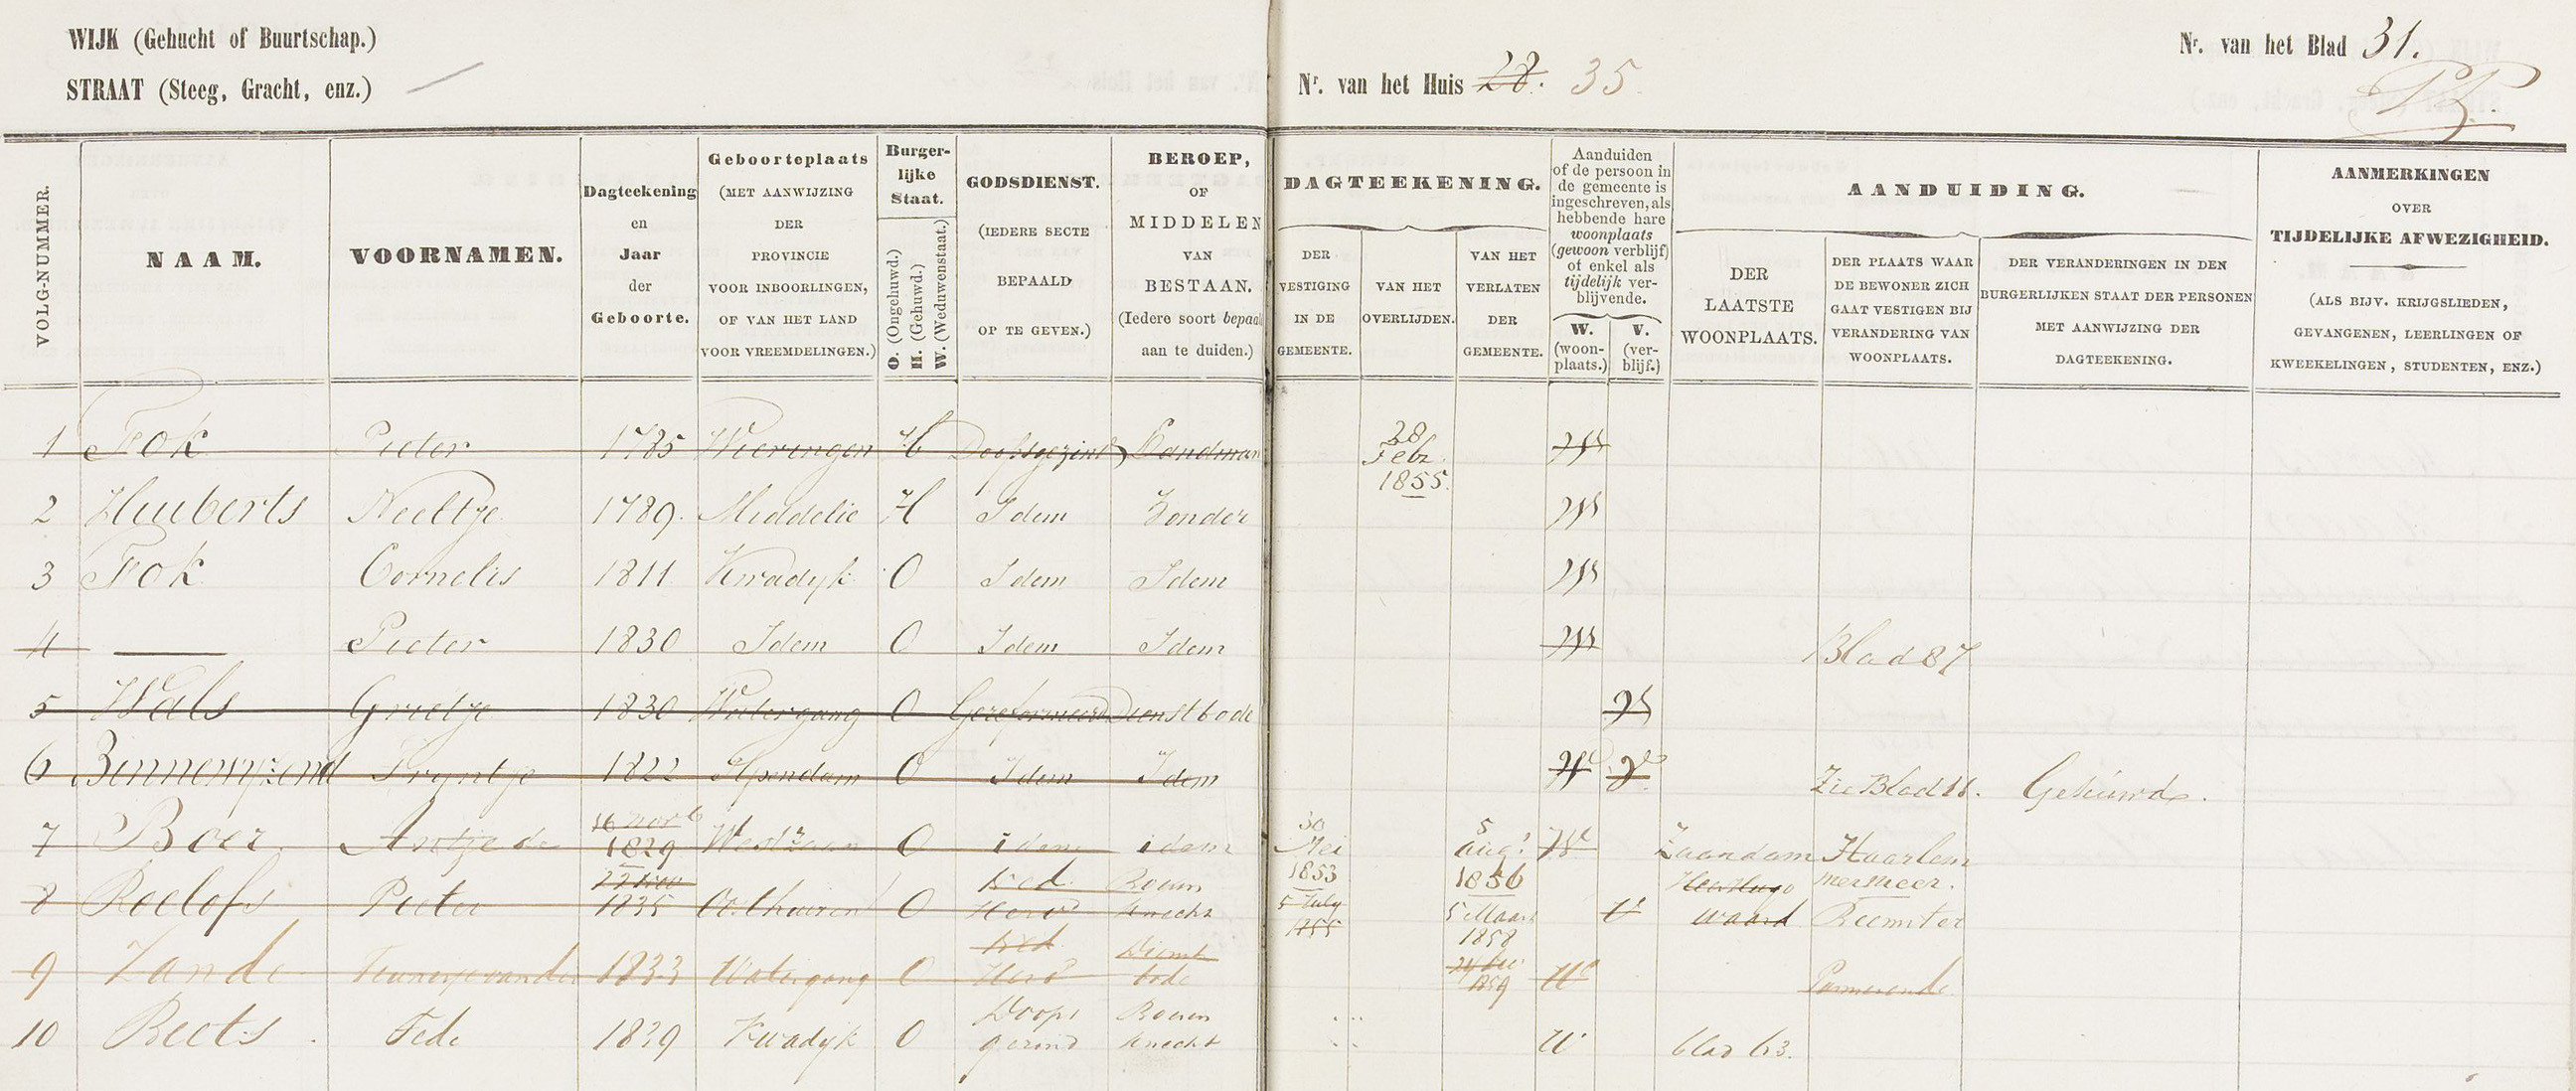 WIJK (Gehucht of Buurtschap.)
STRAAT (Steeg, Gracht, enz.)
Nr. van het Huis 28. 35.
Nr. van het Blad 31.
VOLG-NUMMER.
NAAM.
VOORNAMEN.
Dagteekening
en
Jaar
der
Geboorte.
Geboorteplaats
(MET AANWIJZING
DER
PROVINCIE
VOOR INBOORLINGEN,
OF VAN HET LAND
VOOR VREEMDELINGEN.)
Burger-
lijke
Staat.
O. (Ongehuwd.)
H. (Gehuwd.)
W. (Weduwenstaat.)
GODSDIENST.
(IEDERE SECTE
BEPAALD
OP TE GEVEN.)
BEROEP,
OF
MIDDELEN
VAN
BESTAAN.
(Iedere soort bepaal
aan te duiden.)
DAGTEEKENING.
DER
VESTIGING
IN DE
GEMEENTE.
VAN HET
OVERLIJDEN.
VAN HET
VERLATEN
DER
GEMEENTE.
Aanduiden
of de persoon in
de gemeente is
ingeschreven, als
hebbende hare
woonplaats
(gewoon verblijf)
of enkel als
tijdelijk ver-
blijvende.
W.
(woon-
plaats.)
V.
(ver-
blijf.)
AANDUIDING.
DER
LAATSTE
WOONPLAATS.
DER PLAATS WAAR
DE BEWONER ZICH
GAAT VESTIGEN BIJ
VERANDERING VAN
WOONPLAATS.
DER VERANDERINGEN IN DEN
BURGERLIJKEN STAAT DER PERSONEN
MET AANWIJZING DER
DAGTEEKENING.
AANMERKINGEN
OVER
TIJDELIJKE AFWEZIGHEID.
(ALS BIJV. KRIJGSLIEDEN,
GEVANGENEN, LEERLINGEN OF
KWEEKELINGEN, STUDENTEN, ENZ.)
1 Fok Pieter 1785 Wieringen H Doopsgezind Landman 28 Febr. 1855. W
2 Huuberts Neeltje 1789. Middelie H Idem Zonder W
3 Fok Cornelis 1811 Kwadyk O Idem Idem W
4 — Pieter 1830 Idem O Idem Idem W Blad 87
5 Wals Grietje 1830 Watergang O Gereformeerd Dienstbode
6 Binnenwyzend Tryntje 1822 Ilpendam O Idem Idem W V Zie Blad 11. Gehuwd.
7 Boer Antje de 16 nov 1829 Westzaan O idem idem 30 Mei 1853 5 Aug 1856 W Zaandam Haarlem mermeer.
8 Roelofs Pieter 1835 O Ned Herv Boeren knecht 5 July 1855 5 Maart 1858 V Heerhugo waard Beemster
9 Zande van der 1833 Watergang O Ned Herv Dienst bode 1859 W Purmerende
10 Beets Fede 1839 Kwadyk O Doops gezind Boeren knecht W blad 63.